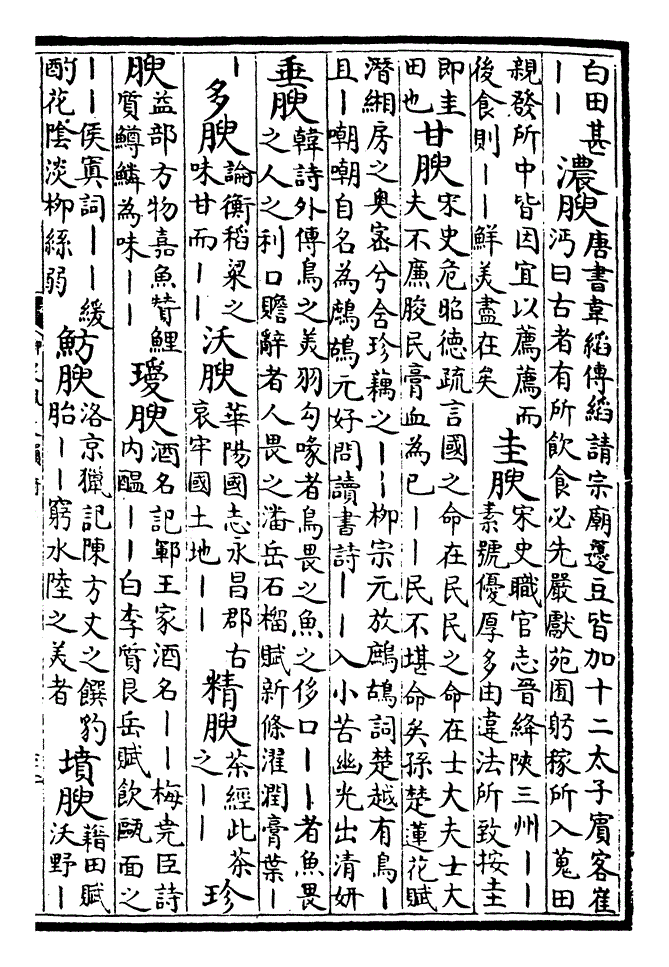 白田甚
丨丨
濃腴
唐書韋縚傳縚請宗廟籩豆皆加十二太子賓客崔
沔曰古者有所飲食必先嚴獻苑囿躬稼所入蒐田
親發所中皆因宜以薦薦而
後食則丨丨鮮美盡在矣
圭腴
宋史職官志晉絳陜三州丨丨
素號優厚多由違法所致按圭
即圭
田也
甘腴
宋史危昭德疏言國之命在民民之命在士大夫士大
夫不廉朘民膏血為已丨丨民不堪命矣孫楚蓮花賦
潛緗房之奧密兮含珍藕之丨丨柳宗元放鷓鴣詞楚越有鳥丨
且丨嘲嘲自名為鷓鴣元好問讀書詩丨丨入小苦幽光出清妍
垂腴
韓詩外傳鳥之美羽勾喙者鳥畏之魚之侈口丨丨者魚畏
之人之利口贍辭者人畏之潘岳石榴賦新條濯潤膏葉丨
丨
多腴
論衡稻粱之
味甘而丨丨
沃腴
華陽國志永昌郡古
哀牢國土地丨丨
精腴
茶經此茶
之丨丨
珍
腴
益部方物嘉魚贊鯉
質鱒鱗為味丨丨
瓊腴
酒名記鄆王家酒名丨丨梅堯臣詩
内醞丨丨白李質艮岳賦飲甌面之
丨丨侯寘詞丨丨緩
酌花陰淡柳絲弱
魴腴
洛京獵記陳方丈之饌豹
胎丨丨窮水陸之美者
墳腴
籍田賦
沃野丨